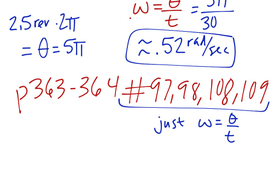 2.5 rev · 2π
= θ = 5π
ω = θ/t = 5π/30
≈ .52 rad/sec
p363-364 #97,98,108,109
just ω = θ/t